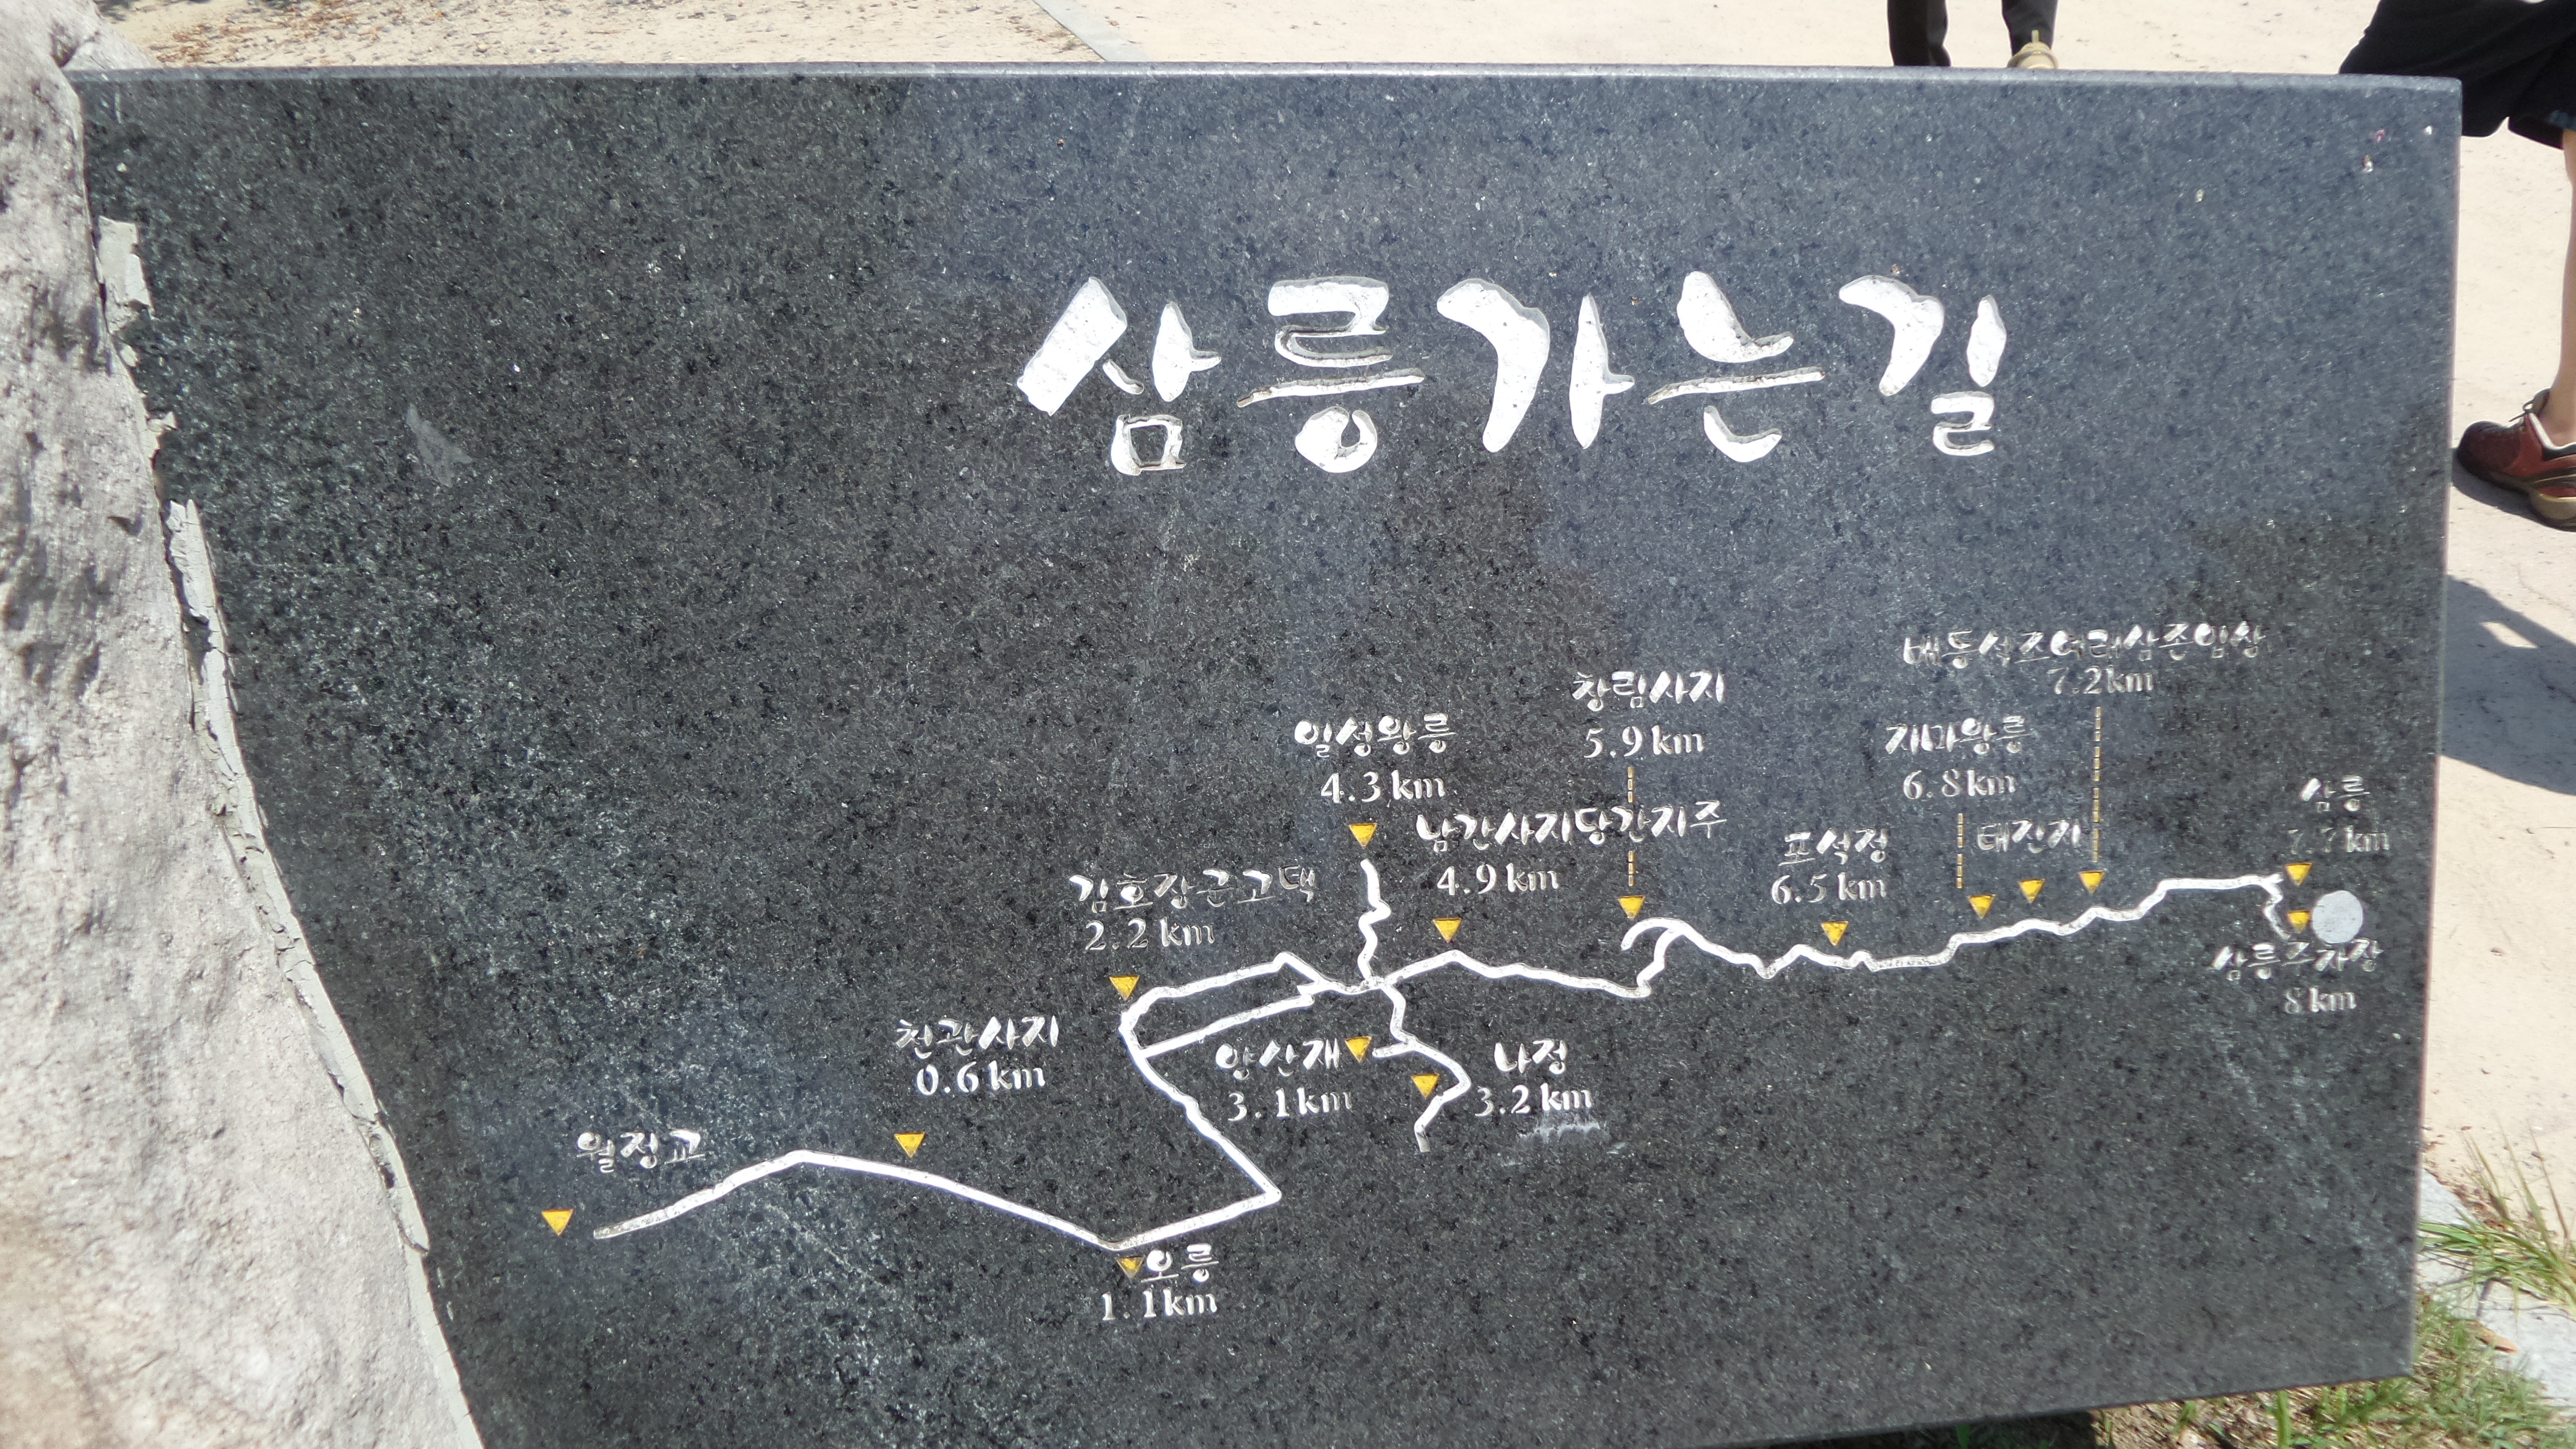 삼릉가는길
배동석조여래삼존입상
7.2km
창림사지
5.9km
일성왕릉
4.3km
지마왕릉
6.8km
삼릉
7.7km
남간사지당간지주
4.9km
포석정
6.5km
태진지
김호장군고택
2.2km
삼릉주차장
8km
천관사지
0.6km
양산재
3.1km
나정
3.2km
월정교
오릉
1.1km